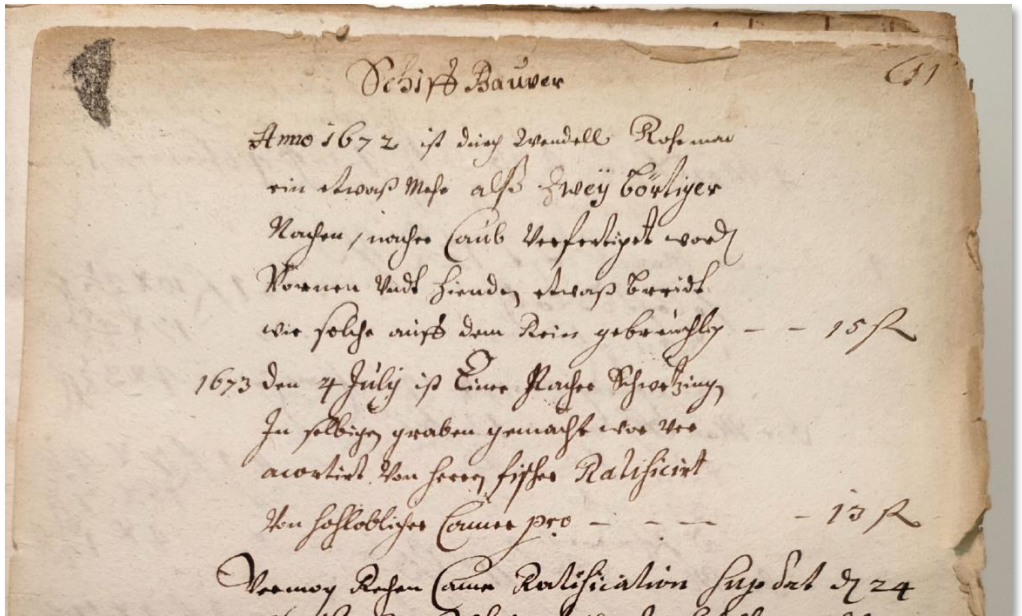 Schiff Bauver
611
Anno 1672 ist durch Wendell Rohrman
ein etwaß Mehr alß Zweÿ börtiger
Nachen, nacher Caub Verfertiget word
Vornen Vndt hienden etwaß breidt
wie solche auff dem Rein gebreuchlich - - 15 fl
1673 den 4 Julÿ ist Einer Nacher Schwetzing
In selbigen graben gemacht wor
acortirt Von herrn fischer Ratificirt
Von hochloblicher Camer pro - - - - - 13 fl
Vermog Rechen Camer Ratification sup dat d 24